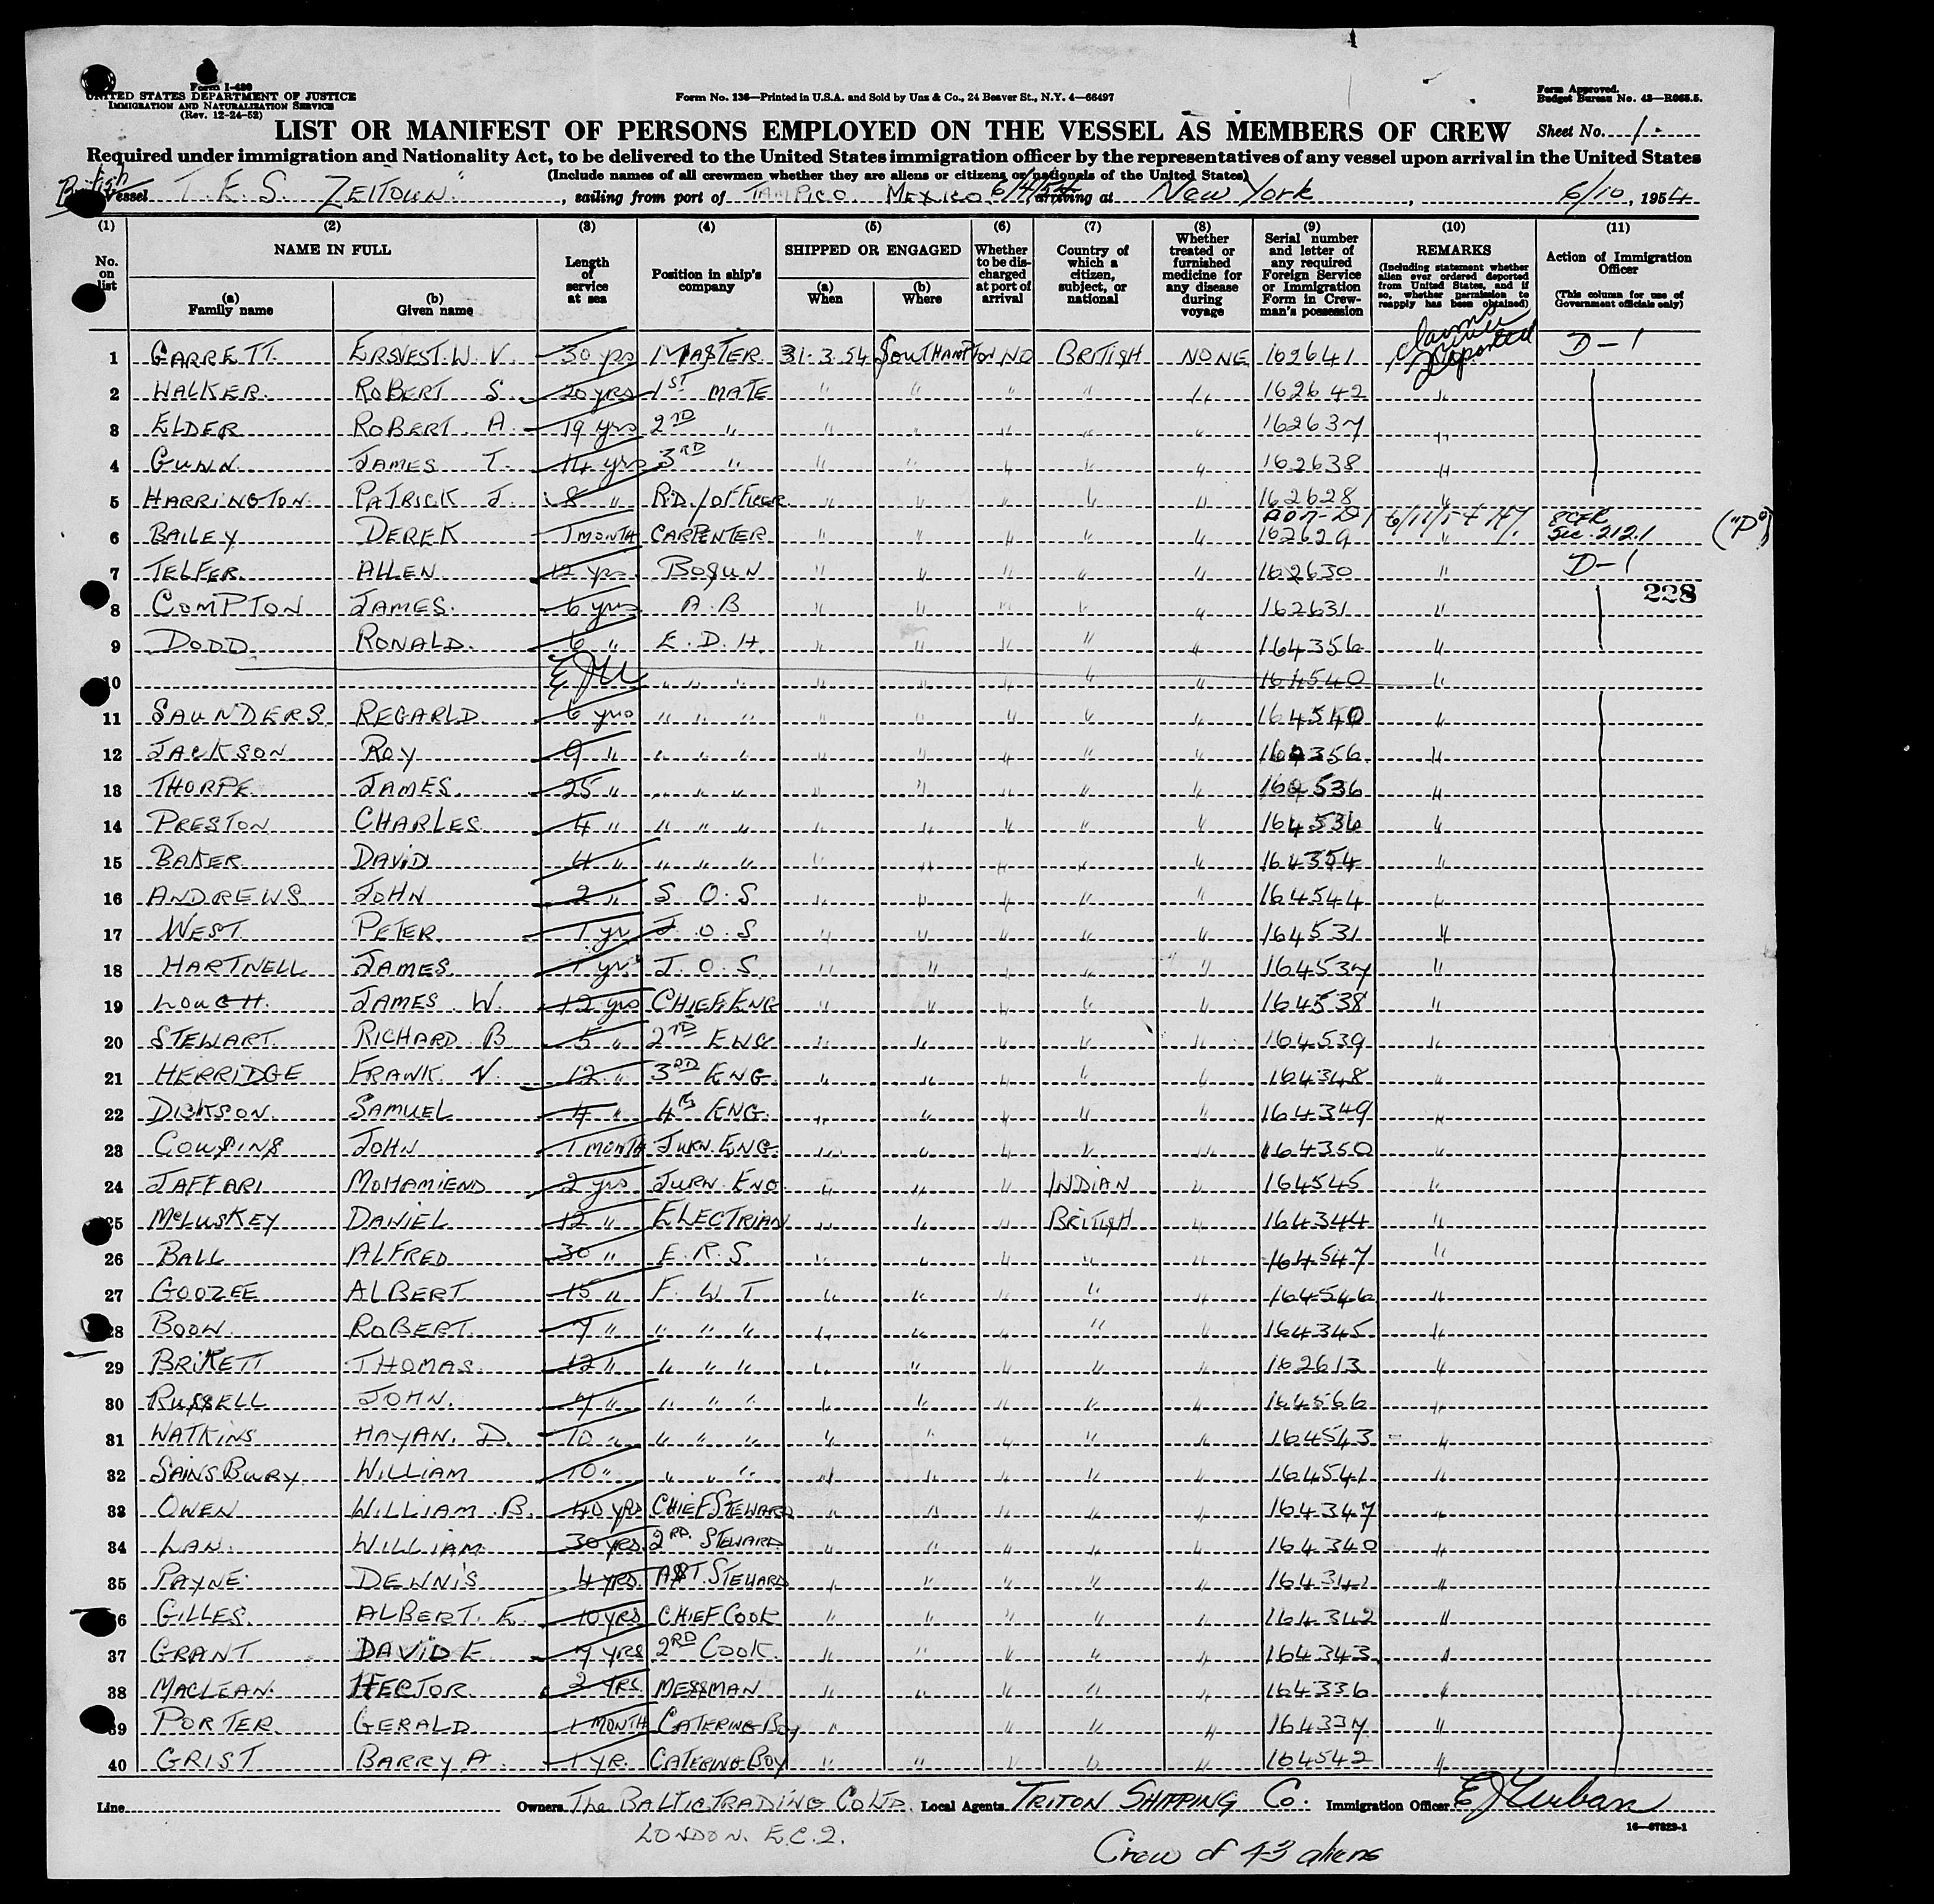 Form I-480
UNITED STATES DEPARTMENT OF JUSTICE
IMMIGRATION AND NATURALIZATION SERVICE
(Rev. 12-24-52)
Form No. 136—Printed in U.S.A. and Sold by Unz & Co., 24 Beaver St., N.Y. 4—66497
Form Approved.
Budget Bureau No. 43—R065.5.
LIST OR MANIFEST OF PERSONS EMPLOYED ON THE VESSEL AS MEMBERS OF CREW
Sheet No. 1.
Required under immigration and Nationality Act, to be delivered to the United States immigration officer by the representatives of any vessel upon arrival in the United States
(Include names of all crewmen whether they are aliens or citizens or nationals of the United States)
British Vessel T.E.S. ZEITOUN", sailing from port of TAMPICO. MEXICO. 6/4/54 arriving at New York, 6/10, 1954
(1) (2) (3) (4) (5) (6) (7) (8) (9) (10) (11)
No. on list
NAME IN FULL
(a) Family name
(b) Given name
Length of service at sea
Position in ship's company
SHIPPED OR ENGAGED
(a) When
(b) Where
Whether to be discharged at port of arrival
Country of which a citizen, subject, or national
Whether treated or furnished medicine for any disease during voyage
Serial number and letter of any required Foreign Service or Immigration Form in Crewman's possession
REMARKS
(Including statement whether alien ever ordered deported from United States, and if so, whether permission to reapply has been obtained)
Action of Immigration Officer
(This column for use of Government officials only)
1 GARRETT. ERNEST. W. V. 30 yrs MASTER. 31.3.54 SOUTHAMPTON NO BRITISH NONE 162641 Deported D-1
2 WALKER. ROBERT S. 20 yrs 1ST MATE " " " " " 162642 "
3 ELDER ROBERT. A. 19 yrs 2ND " " " " " " 162637 "
4 GUNN. JAMES T. 14 yrs 3RD " " " " " " 162638 "
5 HARRINGTON PATRICK J. 8 " RD./OFFICER " " " " " 162628 "
6/11/54 NY. 8CFR
6 BAILEY DEREK 1 MONTH CARPENTER " " " " " 162629 " Sec. 212.1 ("P")
7 TELFER. ALLEN. 12 yrs. BOSUN " " " " " 162630 " D-1
228
8 COMPTON JAMES. 6 yrs A.B " " " " " 162631 "
9 DODD RONALD. 6 " E.D.H. " " " " " 164356 "
10 " " " " " " " " 164540 "
11 SAUNDERS REGARLD 6 yrs " " " " " " " " 164540 "
12 JACKSON ROY 9 " " " " " " " " " 164356 "
13 THORPE JAMES. 25 " " " " " " " " " 164536 "
14 PRESTON CHARLES. 4 " " " " " " " " " 164536 "
15 BAKER DAVID 4 " " " " " " " " " 164354 "
16 ANDREWS JOHN 2 " S.O.S " " " " " 164544 "
17 WEST. PETER. 1 yr J.O.S " " " " " 164531 "
18 HARTNELL JAMES. 1 yr J.O.S. " " " " " 164537 "
19 LOUGH. JAMES W. 12 yrs CHIEF.ENG " " " " " 164538 "
20 STEWART. RICHARD B 5 " 2ND ENG " " " " " 164539 "
21 HERRIDGE FRANK. V. 12 " 3RD ENG. " " " " " 164348 "
22 DICKSON. SAMUEL 4 " 4TH ENG. " " " " " 164349 "
23 COUSINS JOHN 1 MONTH JURN. ENG. " " " " " 164350 "
24 JAFFARI MOHAMIEND 2 yrs JURN. ENG. " " " INDIAN " 164545 "
25 McLUSKEY DANIEL 12 " ELECTRIAN " " " BRITISH " 164344 "
26 BALL ALFRED 30 " E.R.S. " " " " " 164547 "
27 GOOZEE ALBERT 15 " F. W T " " " " " 164546 "
28 BOOW. ROBERT. 7 " " " " " " " " " 164345 "
29 BRIKETT THOMAS. 12 " " " " " " " " " 162613 "
30 RUSSELL JOHN. 7 " " " " " " " " " 164566 "
31 WATKINS HAYAN. D. 10 " " " " " " " " " 164543 "
32 SAINSBURY. WILLIAM 10 " " " " " " " " " 164541 "
33 OWEN WILLIAM. B. 40 YRS CHIEF.STEWARD " " " " " 164347 "
34 LAN. WILLIAM 30 YRS. 2RD. STEWARD " " " " " 164340 "
35 PAYNE DENNIS 4 YRS. AST. STEWARD " " " " " 164341 "
36 GILLES. ALBERT. E. 10 YRS CHIEF COOK " " " " " 164342 "
37 GRANT DAVID E 7 YRS 2RD COOK. " " " " " 164343 "
38 MACLEAN. HECTOR. 2 YRS. MESSMAN " " " " " 164336 "
39 PORTER. GERALD 1 MONTH CATERING BOY " " " " 164337 "
40 GRIST BARRY A. 1 YR. CATERING BOY " " " " " 164542 "
Line Owners The BALTIC TRADING Co LTD. Local Agents TRITON SHIPPING Co. Immigration Officer
LONDON. E.C.2.
16—67829-1
Crew of 43 aliens